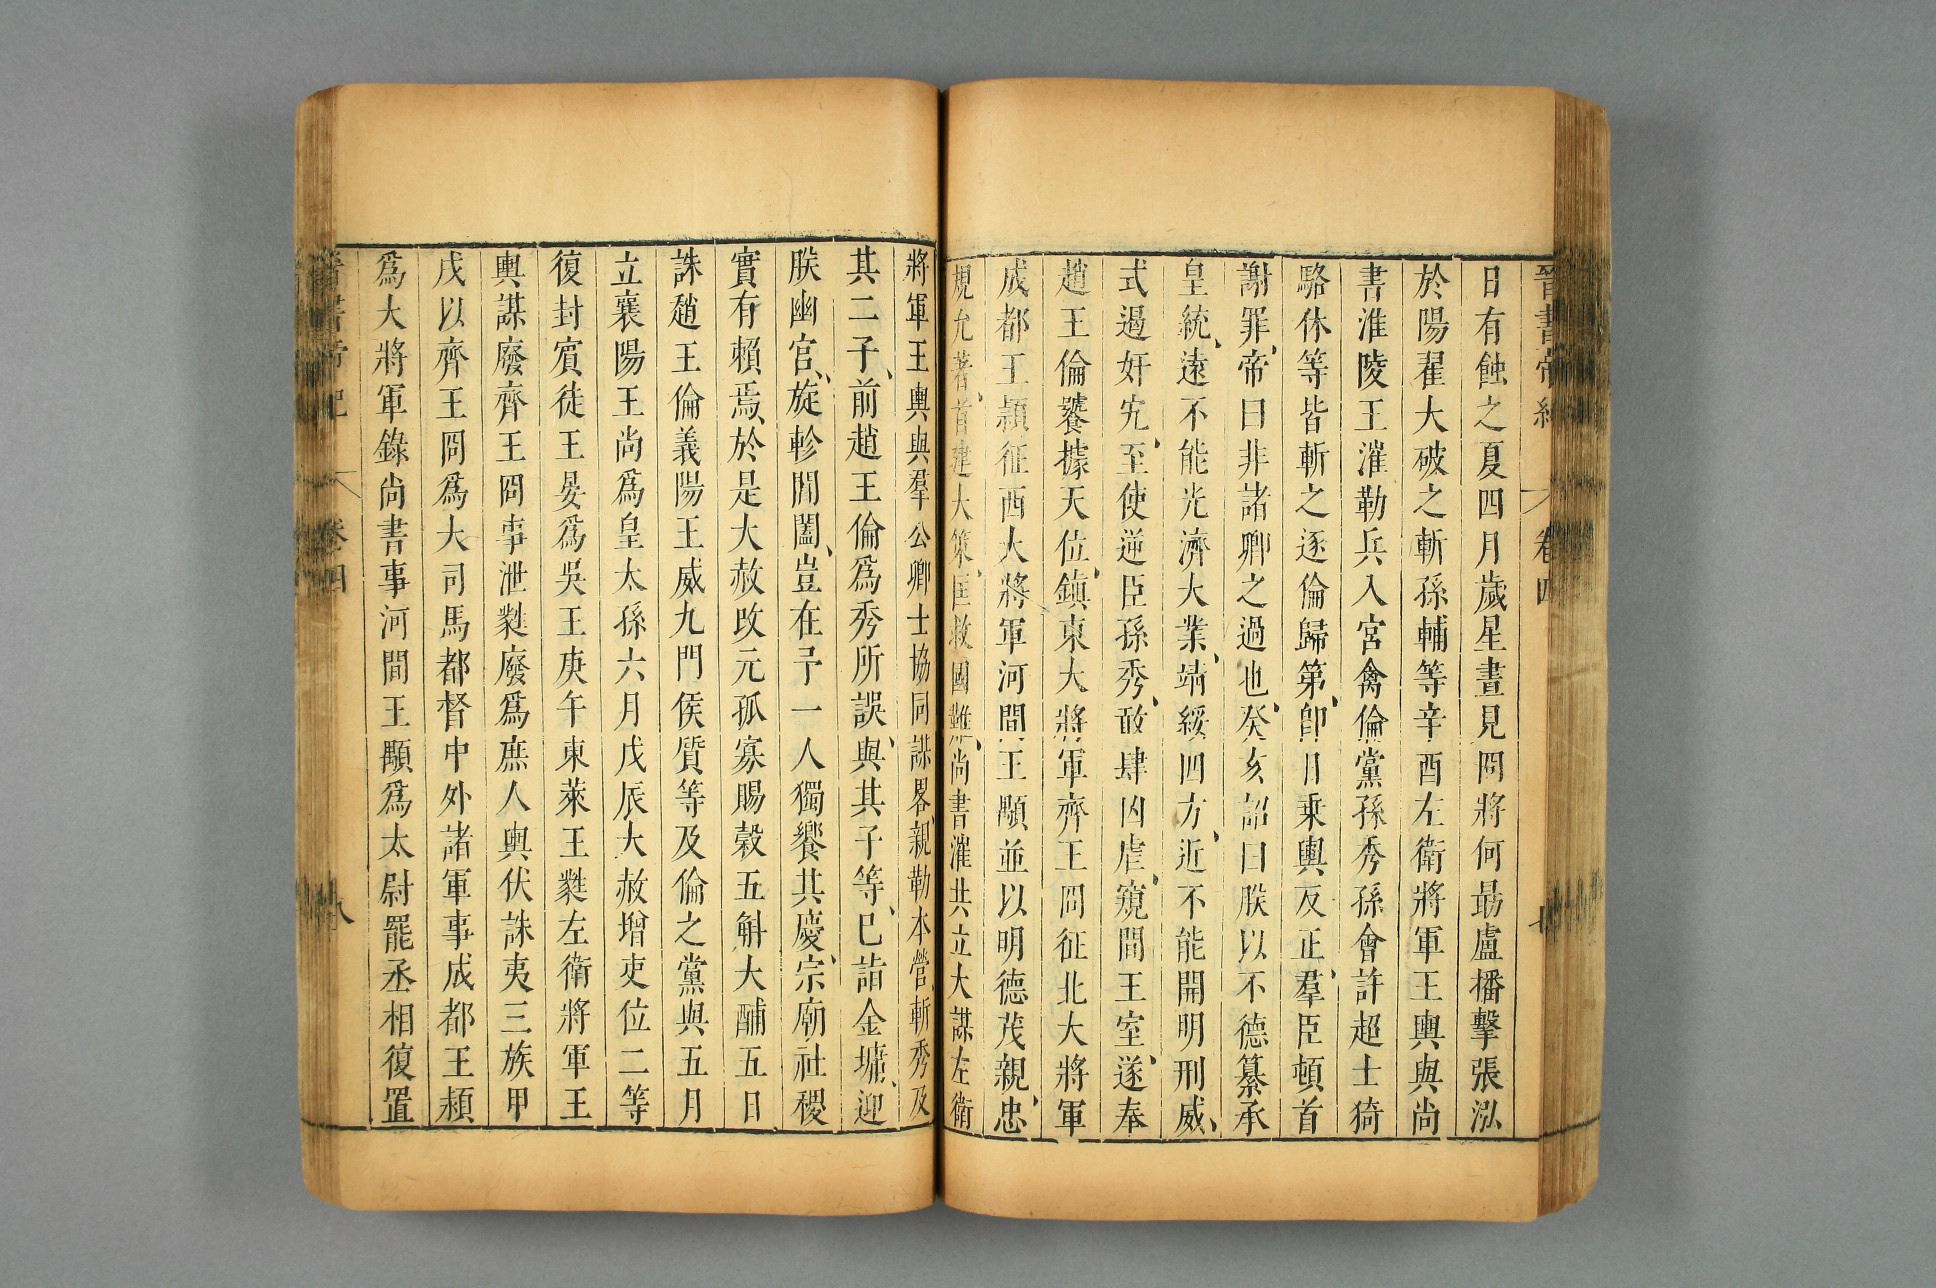 晉書帝紀 卷四 七
日有蝕之夏四月歲星晝見冏將何勗盧播擊張泓
於陽翟大破之斬孫輔等辛酉左衛將軍王輿與尚
書淮陵王漼勒兵入宮禽倫黨孫秀孫會許超士猗
駱休等皆斬之逐倫歸第、卽日乘輿反正、羣臣頓首
謝罪、帝曰非諸卿之過也、癸亥詔曰朕以不德纂承
皇統、遠不能光濟大業、靖綏四方、近不能開明刑威、
式遏奸宄、至使逆臣孫秀、敢肆凶虐、窺間王室、遂奉
趙王倫饕據天位、鎮東大將軍齊王冏征北大將軍
成都王穎征西大將軍河間王顒並以明德茂親、忠
規允著、首建大策、匡救國難、尚書漼共立大謀左衛
將軍王輿與羣公卿士協同謀畧、親勒本營、斬秀及
其二子、前趙王倫爲秀所誤、與其子等、已詣金墉、迎
朕幽宮、旋軫閶闔、豈在予一人獨饗其慶、宗廟社稷
實有賴焉、於是大赦改元孤寡賜穀五斛大酺五日
誅趙王倫義陽王威九門侯質等及倫之黨與五月
立襄陽王尚爲皇太孫六月戊辰大赦增吏位二等
復封賓徒王晏爲吳王庚午東萊王蕤左衛將軍王
輿謀廢齊王冏事泄蕤廢爲庶人輿伏誅夷三族甲
戌以齊王冏爲大司馬都督中外諸軍事成都王穎
爲大將軍錄尚書事河間王顒爲太尉罷丞相復置
晉書帝紀 卷四 八